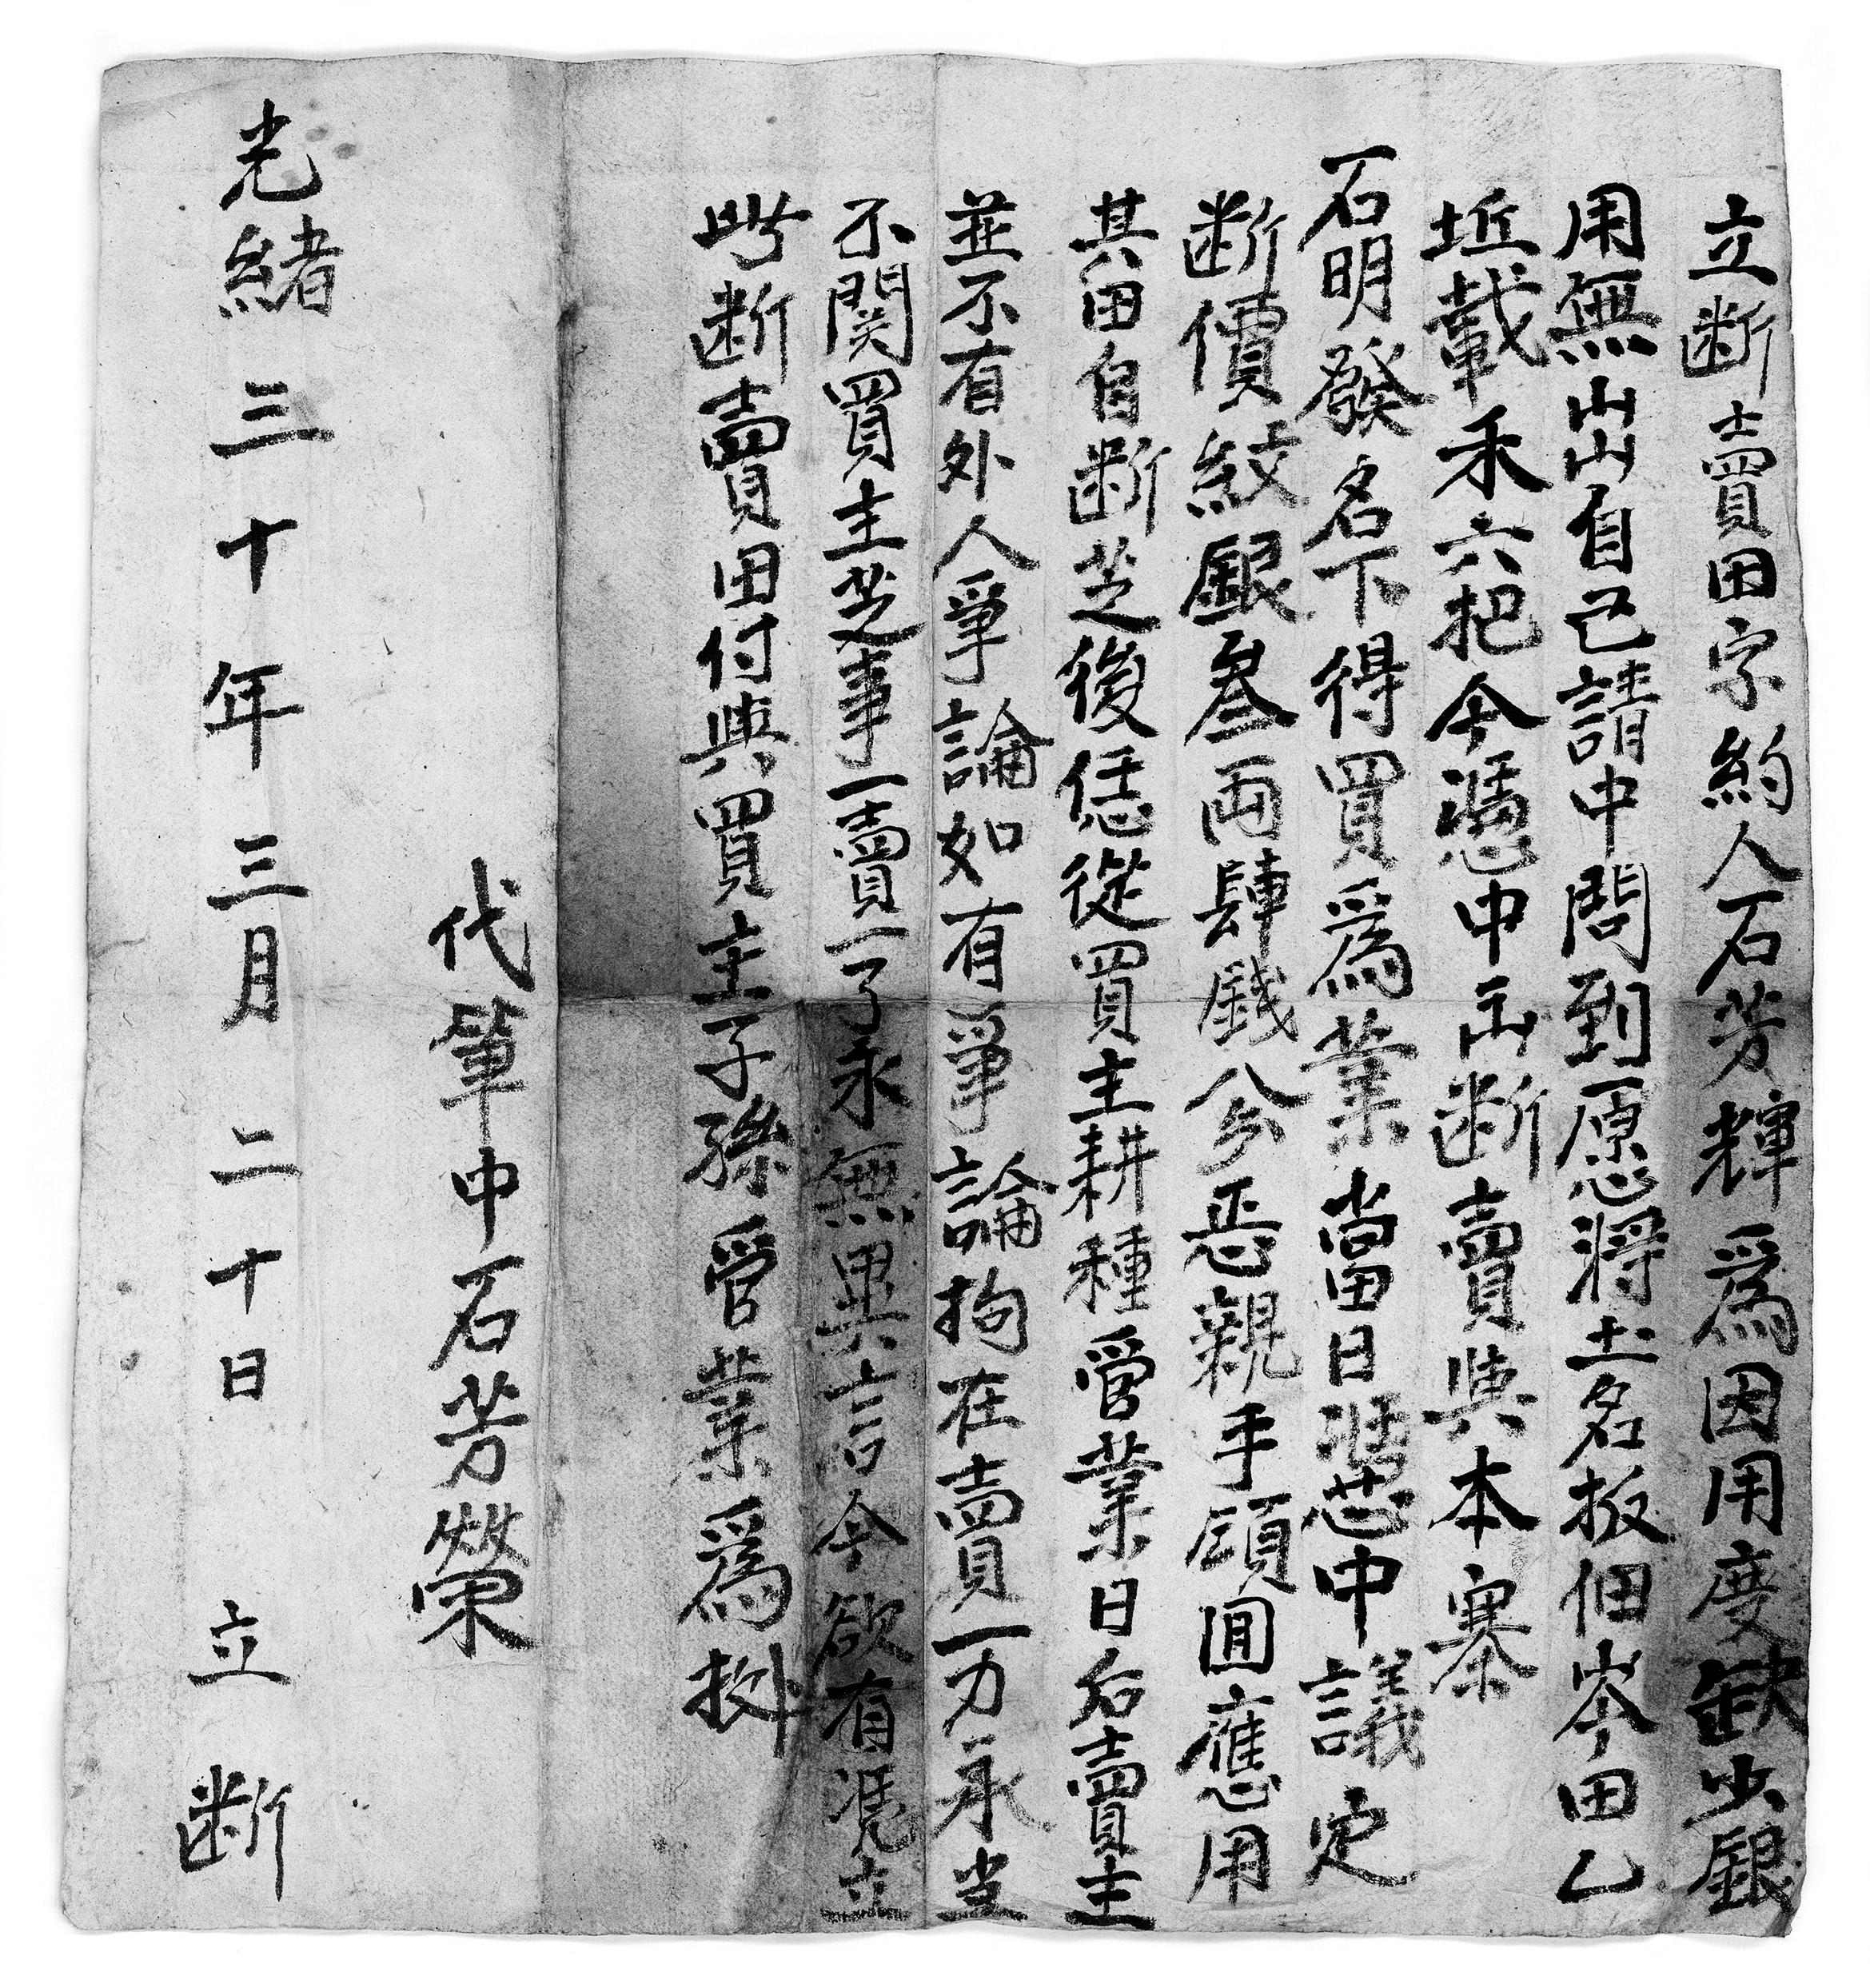 立断賣田字約人石芳輝為因用度缺少銀
用無出自己請中問到愿將土名扳佃岑田乙
坵載禾六把今憑中出断賣與本寨
石明發名下得買為業當日憑中議定
断價紋銀叁両肆錢分悉親手領囬應用
其田自断芝後恁從買主耕種管業日后賣主
並不有外人爭論如有爭論拘在賣一力承当
不関買主芝事一賣一了永無異言今欲有凴立
此断賣田付與買主子孫管業為㨿
代筆中石芳榮
光緒三十年三月二十日立断